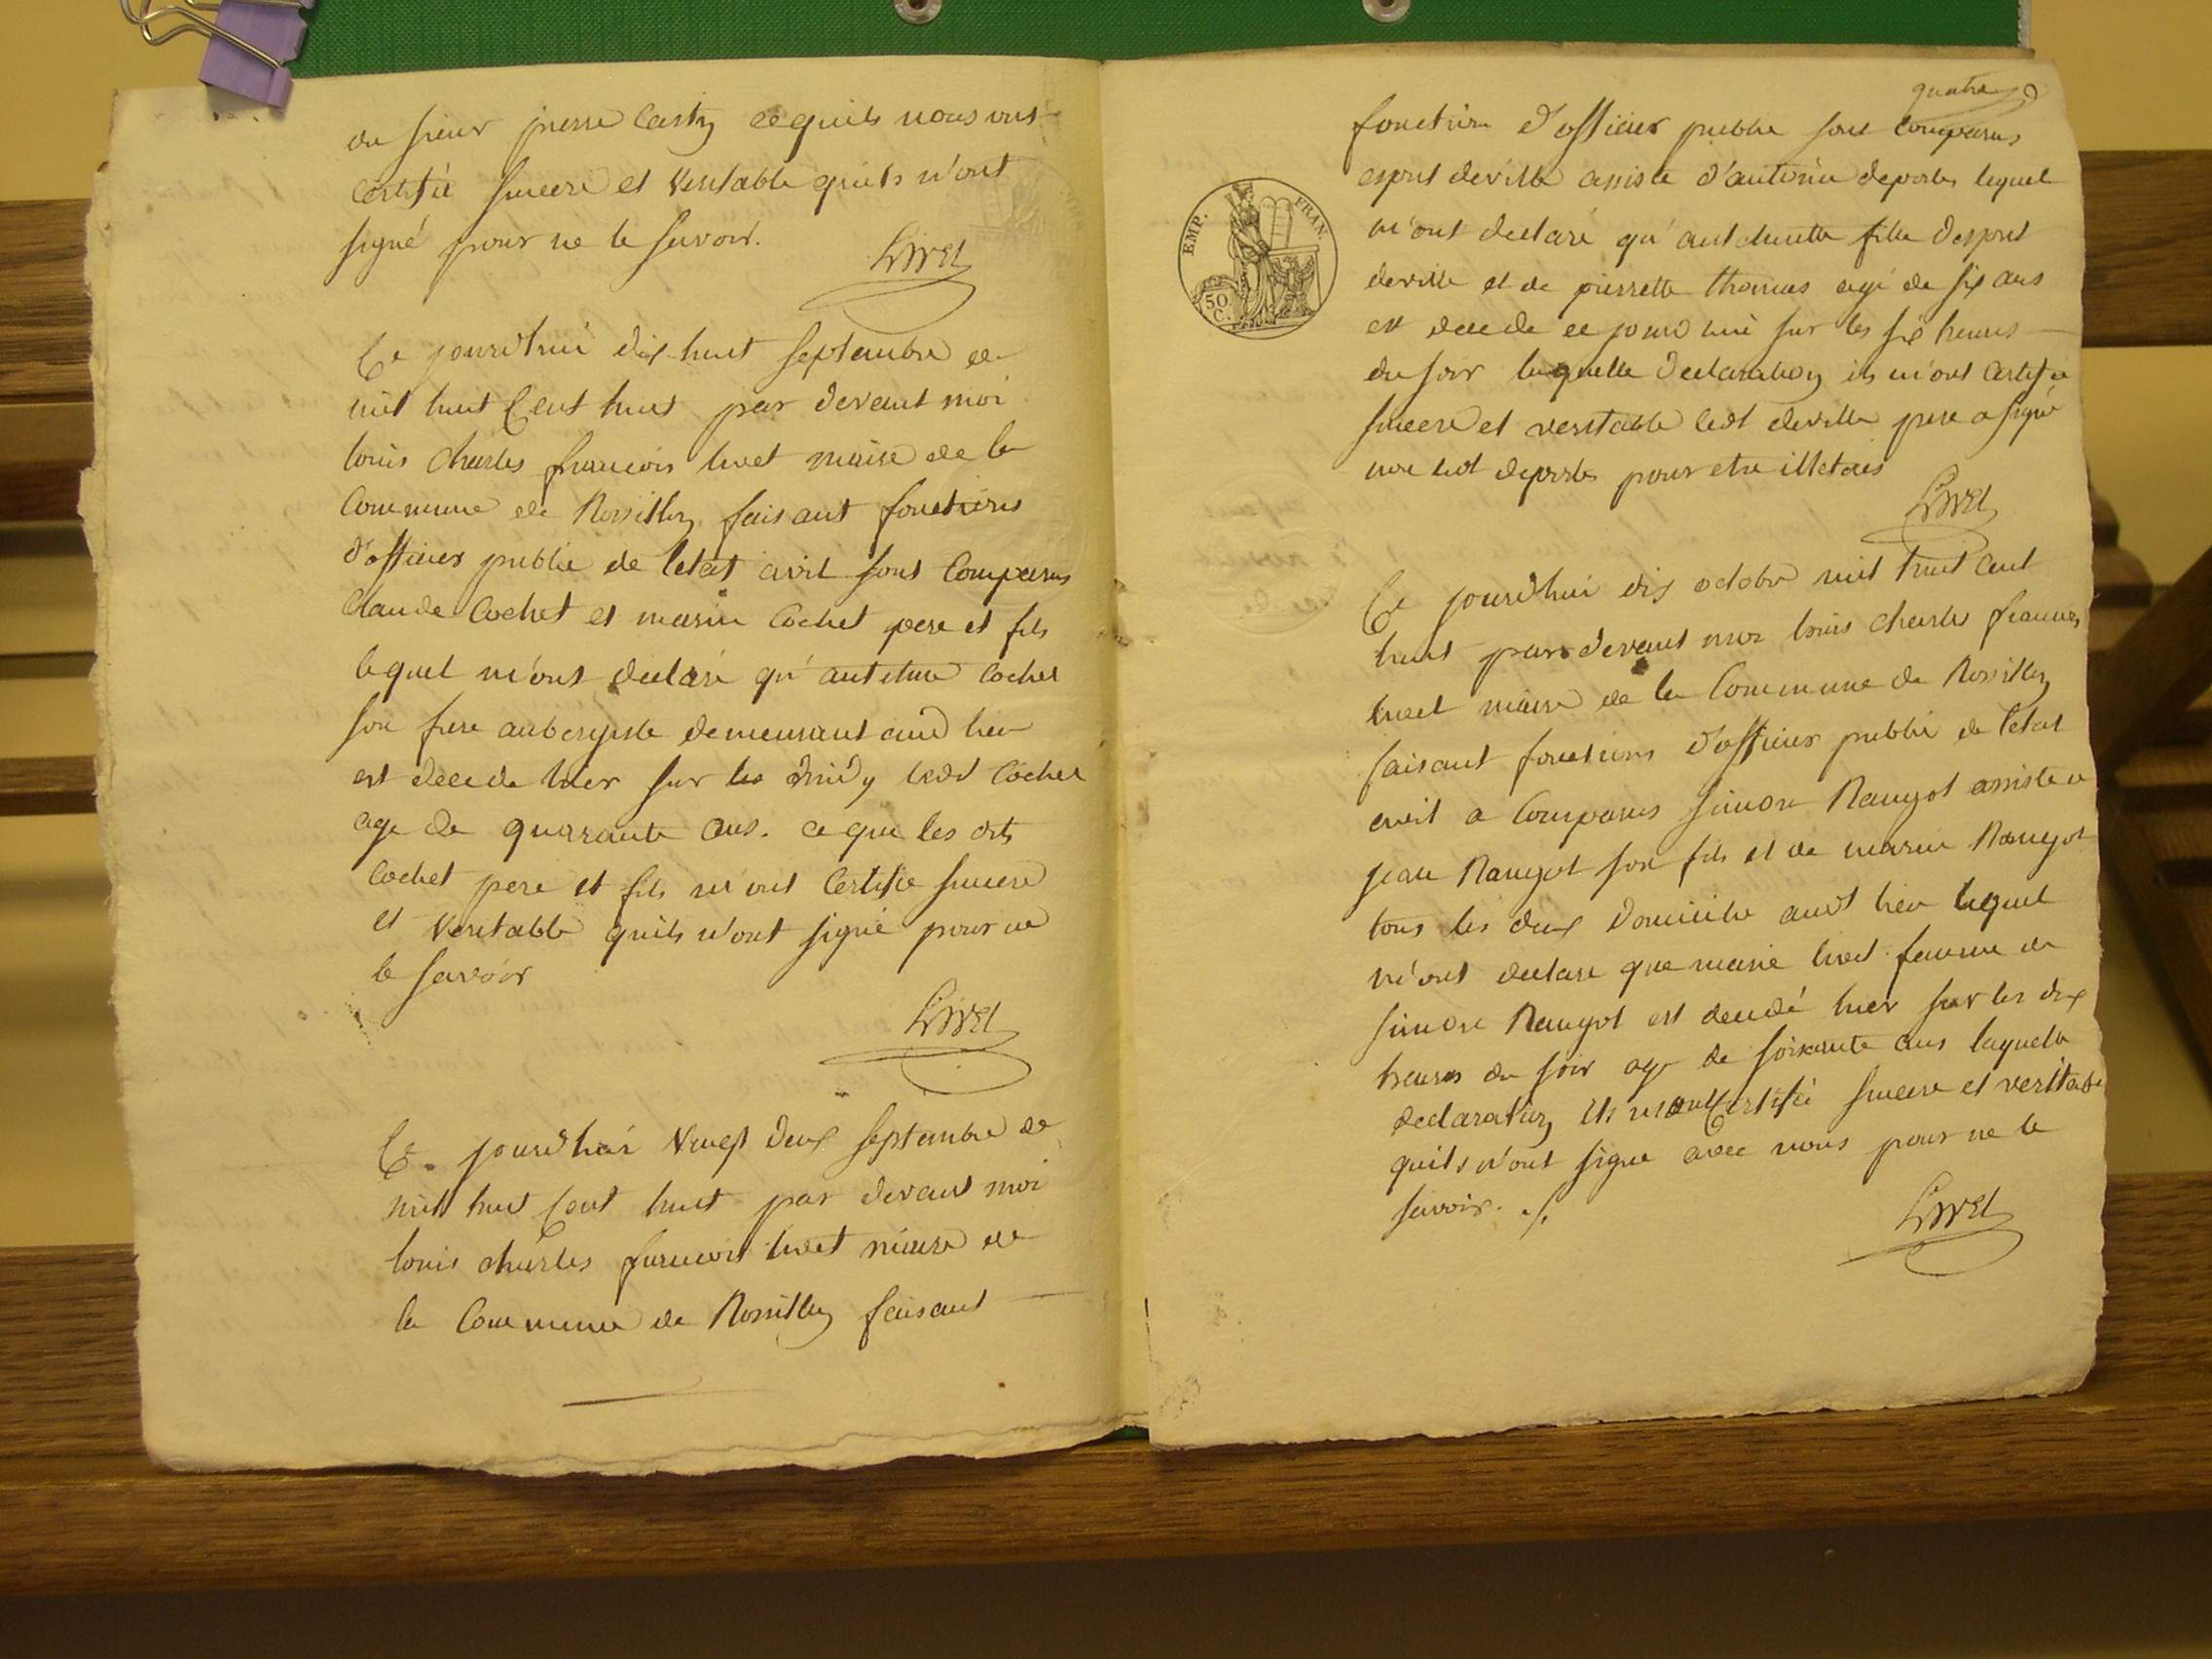 du sieur pierre Castin ce quils nous ont
Certifié sincere et Veritable quils n'ont
signé pour ne le savoir.
Livet
Ce jourd'hui dix huit septembre de
mil huit Cent huit par devant moi
louis charles françois livet maire de la
Commune de Rossillon faisant fonctions
d'officier public de l'etat civil sont Comparus
Claude Cochet et marin Cochet pere et fils
lequel m'ont declaré qu'anthelme Cochet
son frere aubergiste demeurant aud lieu
est decede hier sur les midy led Cochet
age de quarante ans. ce que les dits
Cochet pere et fils m'ont Certifie sincere
et Veritable quils n'ont signé pour ne
le savoir
Livet
Ce jourd'hui Vingt deux septembre de
mil huit Cent huit par devant moi
louis charles françois livet maire de
la Commune de Rossillon faisant
quatre
fonction d'officier public sont Comparus
esprit deville assiste d'antoine deportes lequel
m'ont declaré qu' fille d'esprit
deville et de pierrette thomas agé de six ans
est decede ce jourd'hui sur les six heures
du soir laquelle declaration ils m'ont Certifié
sincere et veritable ledt deville pere a signé
non ledt deportes pour etre illetais
Livet
EMP. FRAN.
50 C.
Ce jourd'hui dix octobre mil huit Cent
huit par devant moi louis charles francois
livet maire de la Commune de Rossillon
faisant fonctions d'officier public de l'etat
civil a Comparus simon Raugot assiste de
jean Raugot son fils et de marin Raugot
tous les deux domicilie audt lieu lequel
m'ont declare que marie livet femme de
simon Raugot est decedé hier sur les dix
heures du soir age de soixante ans laquelle
declaration ils m'ont Certifié sincere et veritable
quils n'ont signe avec nous pour ne le
savoir.
Livet